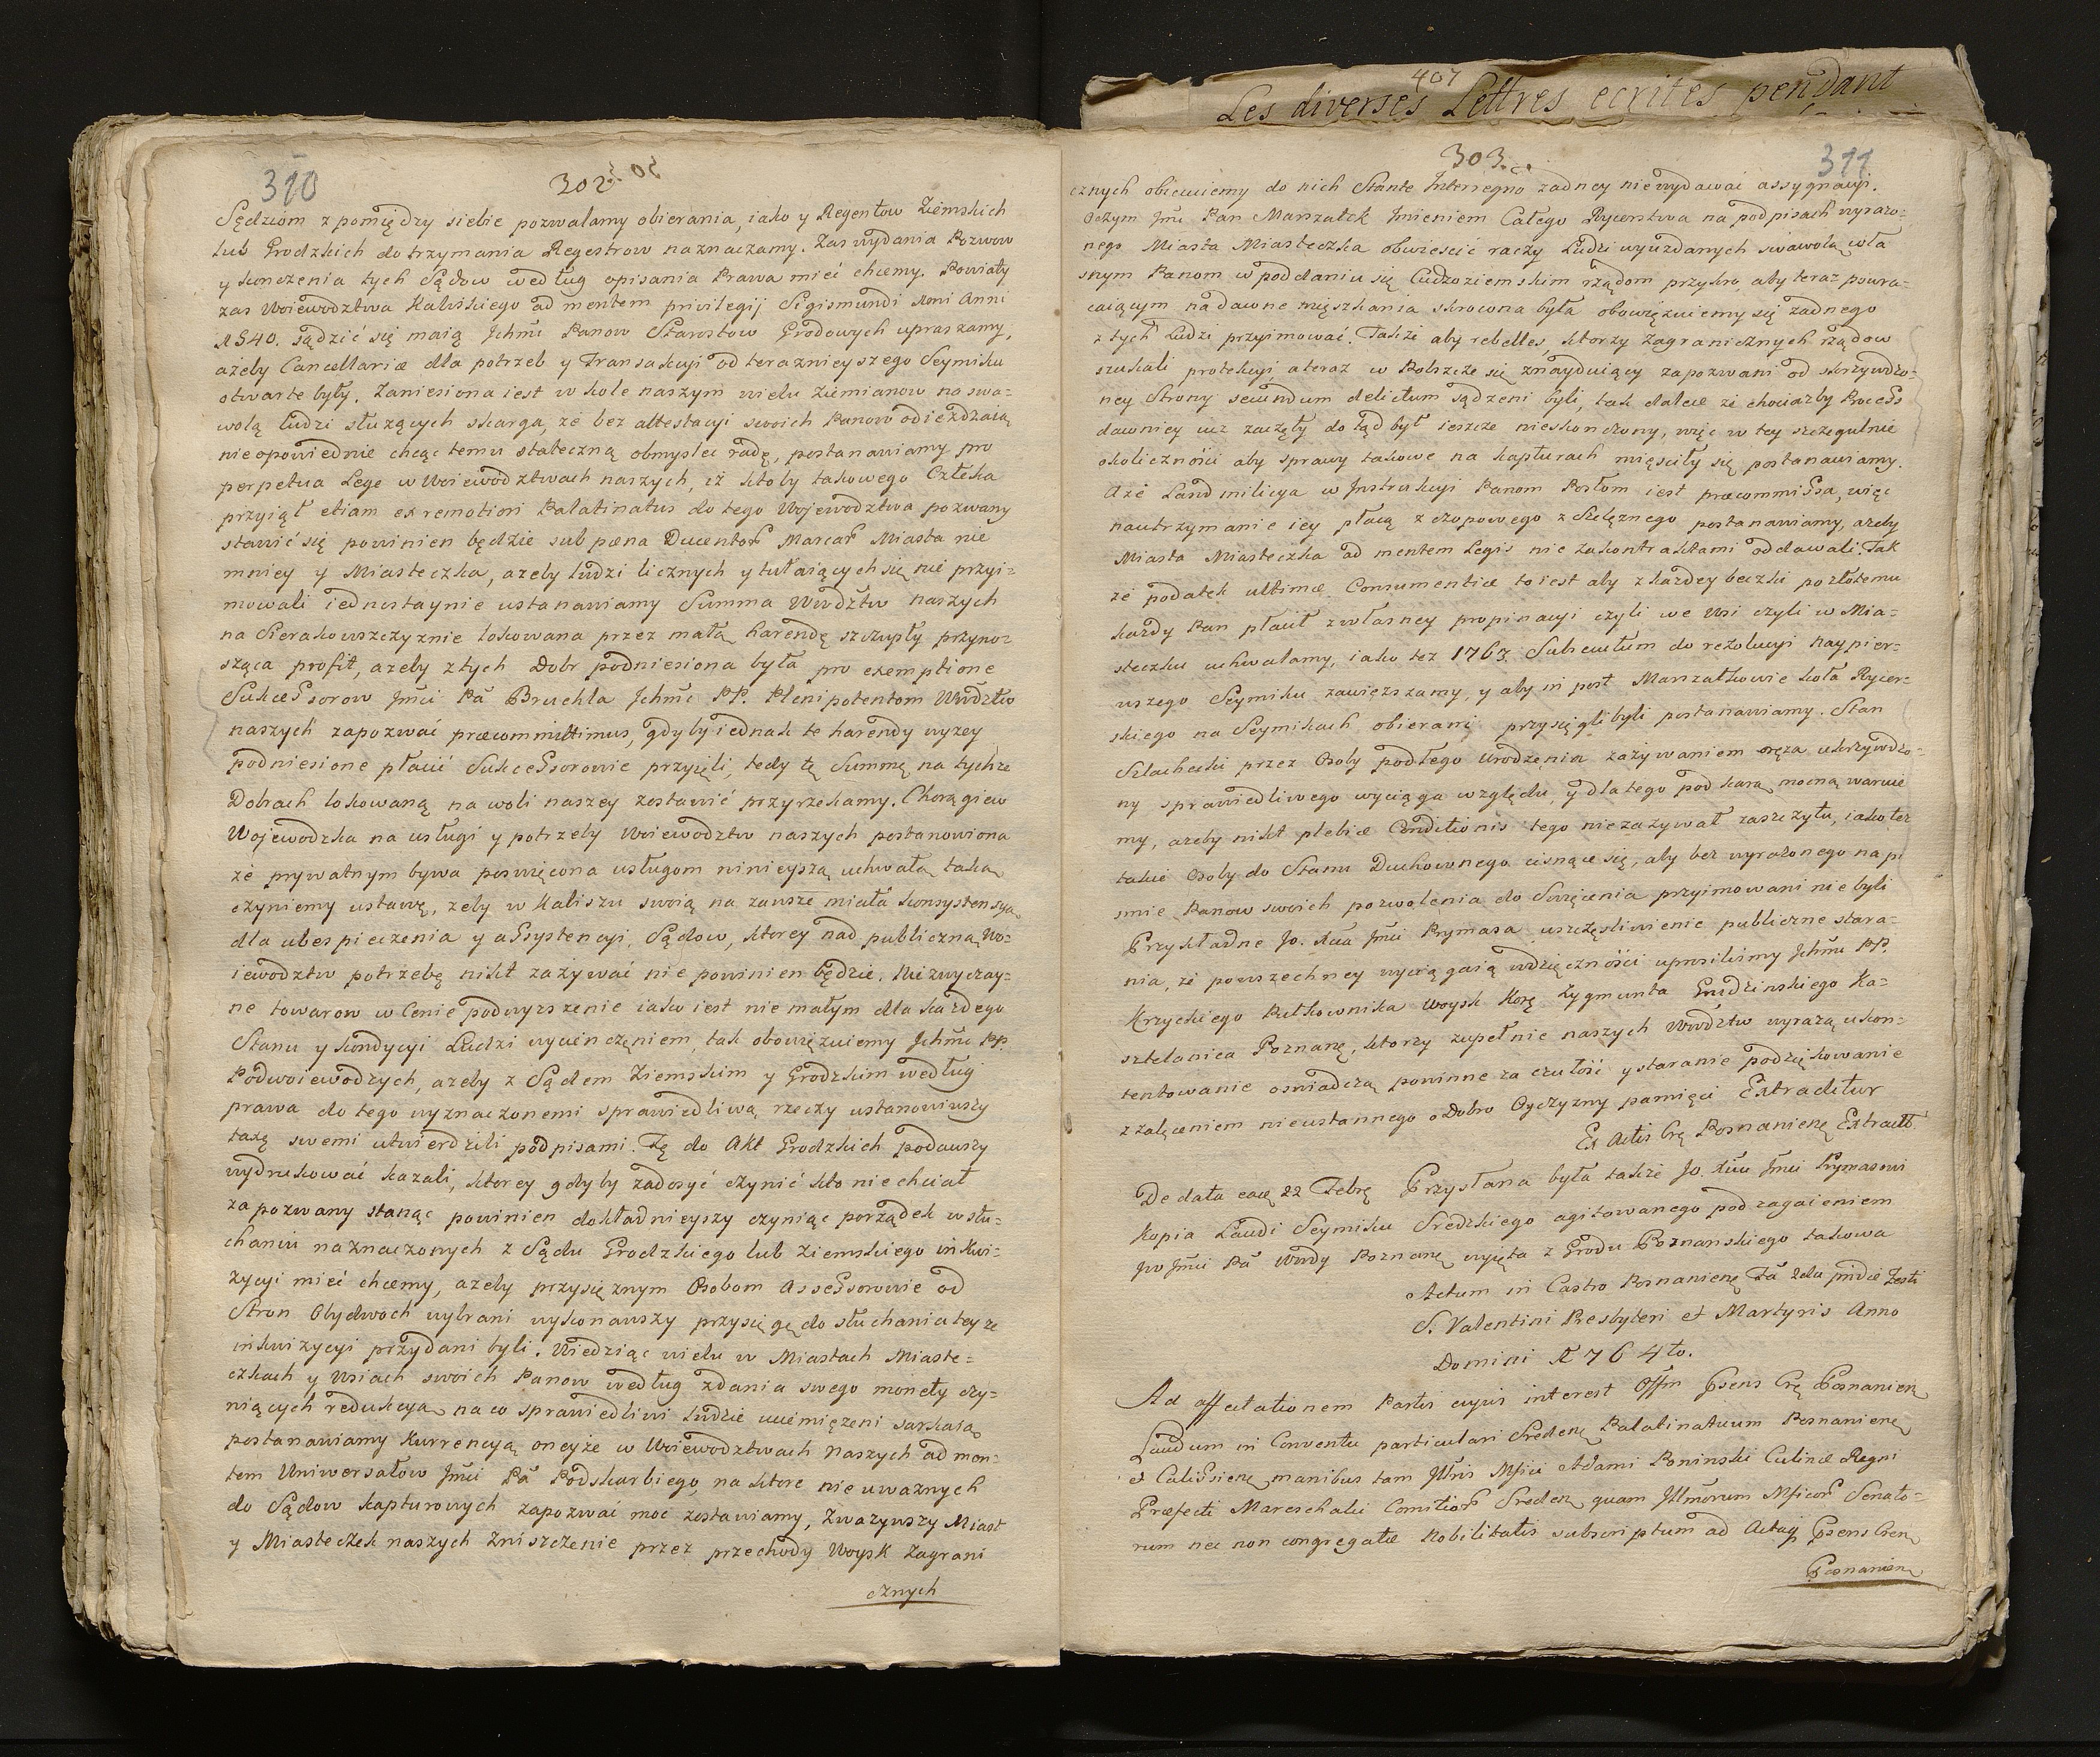 310
302
Sędziom z pomiędzy siebie pozwalamy obierania, iako y Regentow Ziemskich
lub Grodzkich do trzymania Regestrow naznaczamy. Zas wydania Pozwow
y skonczenia tych Sądow według opisania Prawa mieć chcemy. Powiaty
zas Woiewodztwa Kaliskiego ad mentem privilegij Sigismundi Anni
1540. sądzić się maią Jchmć Panow Starostow Grodowych upraszamy,
ażeby Cancellariæ dla potrzeb y Transakcyi od teraznieyszego Seymiku
otwarte były. Zaniesiona iest w kole naszym wielu Ziemianow na swa=
wolą ludzi służących skarga, że bez attestacyi swoich Panow odieżdzaią
nieopowiednie chcąc temu stateczną obmyslec radę, postanawiamy pro
perpetua Lege w Woiewodztwach naszych, iż ktoby takowego Człeka
przyiął etiam ex remotiori Palatinatus do tego Woiewodztwa pozwany
stawić się powinien będzie sub pæna Ducentor Marcar Miasta nie
mniey y Miasteczka, ażeby ludzi licznych y tułaiących się nie przyi=
mowali iednostaynie ustanawiamy Summa Wwdztw naszych
na Sierakowszczyznie lokowana przez małą harendę szczupły przyno=
sząca profit, ażeby z tych Dobr podniesiona była pro exemptione
Sukcessorow Jmći Pa Bruchla Jchmć PP. Plenipotentom Wwdztw
naszych zapozwać præcommittimus, gdyby iednak te harendy wyżey
podniesione płacić Sukcessorowie przyięli, tedy tę Summę na tychże
Dobrach lokowaną na woli naszey zostawić przyrzekamy. Chorągiew
Wojewodzka na usługi y potrzeby Woiewodztw naszych postanowiona
że prywatnym bywa poswięcona usługom ninieyszą uchwałą taką
czyniemy ustawę, żeby w Kaliszu swoią na zawsze miała konsystencyą
dla ubespieczenia y assystencyi Sądow, ktorey nad publiczną Wo=
iewodztw potrzebę nikt zażywać nie powinien będzie. Niezwyczay=
ne towarow w Cenie podwyzszenie iako iest nie małym dla każdego
Stanu y kondycyi Ludzi uciążeniem, tak obowiązuiemy Jchmć PP.
Podwoiewodzych, ażeby z Sądem Ziemskim y Grodzkim według
prawa do tego wyznaczonemi sprawiedliwą rzeczy ustanowiwszy
taxę swemi utwierdzili podpisami. Tę do Akt Grodzkich podawszy
wydrukować kazali, ktorey gdyby zadosyć czynić kto nie chciał
zapozwany stanąc powinien dokładnieyszy czyniąc porządek w słu=
chaniu naznaczonych z Sądu Grodzkiego lub Ziemskiego inkwi=
zycyi mieć chcemy, ażeby przysiężnym Osobom Assessorowie od
Stron Obydwoch wybrani wykonawszy przysięgę do słuchania teyże
inkwizycyi przydani byli. Wiedząc wielu w Miastach Miaste=
czkach y Wsiach swoich Panow według zdania swego monety czy=
niących redukcyą na co sprawiedliwi ludzie uciemiężeni sarkaią
postanawiamy Kurrencyą oneyże w Woiewodztwach naszych ad men=
tem Uniwersałow Jmći Pa Podskarbiego, na ktore nieuważnych
do Sądow kapturowych zapozwać moc zostawiamy, Zważywszy Miast
y Miasteczek naszych zniszczenie przez przechody Woysk Zagrani
cznych
407
Les diverses Lettres ecrites pendant
303.
311
cznych obiecuiemy do nich Stante Interregno zadney niewydawać assygnacyi.
Oczym Jmć Pan Marszałek Imieniem Całego Rycerstwa na podpisach wyrażo=
nego Miasta Miasteczka obwiescić raczy Ludzi wyuzdanych swawolą wła
snym Panom w poddaniu się Cudzoziemskim rządom przykra, aby teraz powra=
caiącym na dawne mięszkania skrocona była obowięzuiemy się żadnego
z tych Ludzi przyimować. Także aby rebelles, ktorzy zagranicznych rządow
szukali protekcyi a teraz w Polszcze się znayduiący zapozwani od skrzywdzo=
ney Strony secundum delictum sądzeni byli, tak dalece że chociażby Process
dawniey iuż zaczęty dotąd był ieszcze nieskonczony, więc w tey szczegulnie
okoliczności aby sprawy takowe na kapturach mięsciły się postanawiamy.
A że Landmilicya w Instrukcyi Panom Posłom iest præcommissa, więc
na utrzymanie iey płacą z czopowego z Szelężnego postanawiamy, ażeby
Miasta Miasteczka ad mentem Legis nie zakontraktami oddawali. Tak
że podatek ultimæ Consumentiæ to iest aby z każdey beczki po złotemu
każdy Pan płacił z własney propinacyi czyli we Wsi czyli w Mia=
steczku uchwalamy, iako też 1763 Subcultum do rezolucyi naypier=
wszego Seymiku zawieszamy, y aby in post Marszałkowie koła Rycer=
skiego na Seymikach obierani przysięgli byli postanawiamy. Stan
Szlachecki przez Osoby podłego Urodzenia zażywaniem oręża ukrzywdzo=
ny sprawiedliwego wyciąga względu, y dla tego pod karą mocną waruie
my, ażeby nikt plebiæ Conditionis tego nie zażywał zaszczytu, iako też
takie Osoby do Stanu Duchownego cisnące się, aby bez wyrażonego na pi
smie Panow swoich pozwolenia do Swięcenia przyimowani nie byli
Przykładne Jo. Xcia Jmći Prymasa uszczęsliwienie publiczne stara=
nia, że powszechney wyciągaią wdzięczności uprosilismy Jchmć PP.
Krzyckiego Pułkownika Woysk Kor Zygmunta Grudzinskiego Ka=
sztelanica Poznan, ktorzy zupełnie naszych Wwdztw wyrażą ukon=
tentowanie oswiadczą powinne za czułość y staranie podziękowanie
z zaleceniem nieustannego o Dobro Oyczyzny pamięci Extraditur
Ex Actis Cr Posnanien Extract.
De data eac 22 Febr Przysłana była także Jo. Xciu Jmći Prymasowi
Kopia Laudi Seymiku Sredzkiego agitowanego pod zagaieniem
Jw Jmći Pa Wwdy Poznan wyięta z Grodu Poznanskiego takowa
Actum in Castro Posnanien Fa 2da pridie Festi
S. Valentini Presbyteri et Martyris Anno
Domini 1764to.
Ad affectationem Partis cujus interest Offm Psens Cr Posnanien
Laudum in Conventu particulari Sreden Palatinatuum Posnanien
et Calissien manibus tam Illris Mfici Adami Poninski Culinæ Regni
Præfecti Mareschalci Comitior Sreden quam Illmorum Mficor Senato=
rum nec non congregatæ Nobilitatis subscriptum ad Actaq Psens Cren
Posnanien